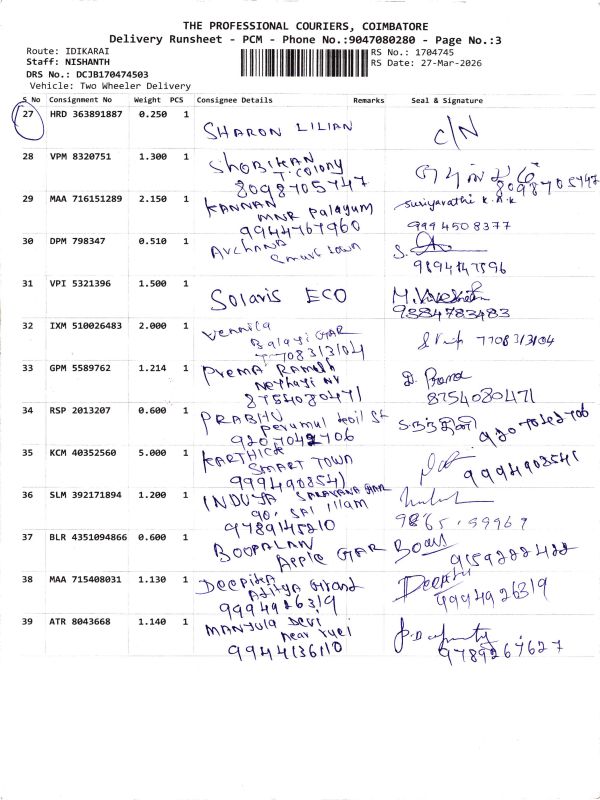 THE PROFESSIONAL COURIERS, COIMBATORE
Delivery Runsheet - PCM - Phone No.:9047080280 - Page No.:3
Route: IDIKARAI
RS No.: 1704745
Staff: NISHANTH
RS Date: 27-Mar-2026
DRS No.: DCJB170474503
Vehicle: Two Wheeler Delivery
S No Consignment No Weight PCS Consignee Details Remarks Seal & Signature
27 HRD 363891887 0.250 1
SHARON LILIAN C/N
28 VPM 8320751 1.300 1
SHOBIKAN
T. COLONY
8098705747 8098705747
29 MAA 716151289 2.150 1
KANNAN suriyavathi K.A.K
MNR Palayam
9944767960 9994508377
30 DPM 798347 0.510 1
Archana S.
Smart town
9894147596
31 VPI 5321396 1.500 1
Solaris ECO
9384783483
32 IXM 510026483 2.000 1
Vennila
Balaji GAR
7708313104 7708313104
33 GPM 5589762 1.214 1
PREMA RAMESH D. Prema
Nethaji Nr
8754080471 8754080471
34 RSP 2013207 0.600 1
PRABHU
Perumal koil St நந்தினி
9207042706
35 KCM 40352560 5.000 1
KARTHICK
SMART TOWN
9994903541
36 SLM 392171894 1.200 1
INDUJA SARAVANA GAR
90, SAI illam
9789145210
37 BLR 4351094866 0.600 1
BOOPALAN
Apple GAR
9159222422
38 MAA 715408031 1.130 1
DEEPIKA
Aditya Grand
9994926319 9994926319
39 ATR 8043668 1.140 1
MANJULA Devi
near
9944136110 9789267627